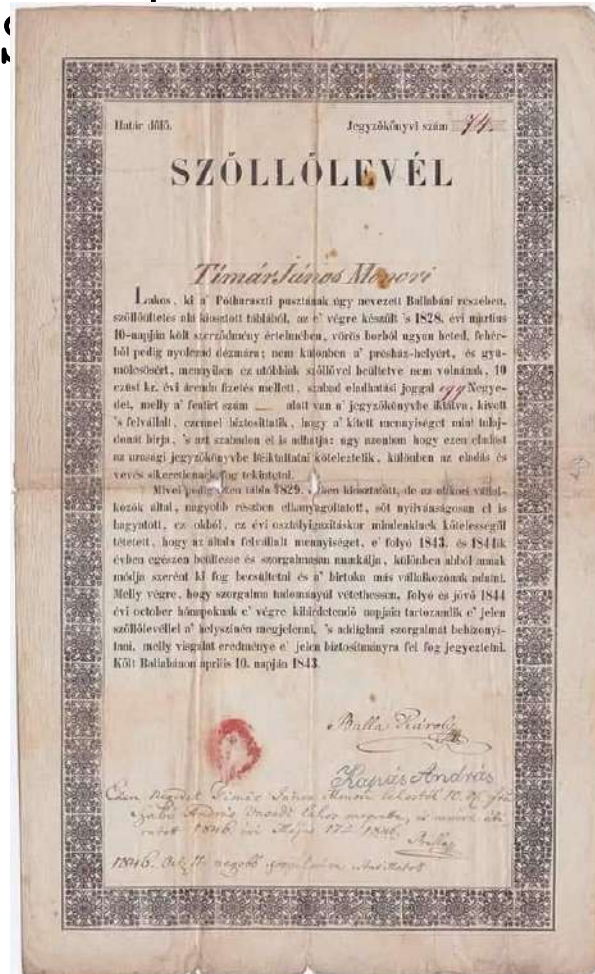 Határ dőlő. Jegyzőkönyvi szám 74.
SZŐLLŐLEVÉL
Tímár János Monori
Lakos, ki a' Potharaszti pusztának úgy nevezett Ballabáni részében,
szőllőültetés alá kiosztott táblából, az e' végre készült 's 1828. évi martius
10-napján költ szerződmény értelmében, vörös borból ugyan heted, fehér-
ből pedig nyolczad dézmára; nem különben a' présház-helyért, és gyü-
mölcsösért, mennyiben ez utóbbiak szőllővel beültetve nem volnának, 10
ezüst kr. évi árenda fizetés mellett, szabad eladhatási joggal egy Negye-
det, melly a' fentirt szám alatt van a' jegyzőkönyvbe iktatva, kivett
's felvállalt, ezennel biztosittatik, hogy a' kitett mennyiséget mint tulaj-
donát birja, 's azt szabadon el is adhatja: úgy azonban hogy ezen eladást
az urasági jegyzőkönyvbe béiktattatni köteleztetik, különben az eladás és
vevés sikeretlennek fog tekintetni.
Mivel pedig ezen tábla 1829. évben kiosztatott, de az akkori vállal-
kozók által, nagyobb részben elhanyagoltatott, sőt nyilvánságosan el is
hagyatott, ez okból, ez évi osztályigazitáskor mindenkinek kötelességül
tétetett, hogy az általa felvállalt mennyiséget, e' folyó 1843. és 1844ik
évben egészen beültesse és szorgalmasan munkálja, különben abból annak
módja szerént ki fog becsültetni és a' birtoka más vállalkozónak adatni.
Melly végre, hogy szorgalma tudományúl vétethessen, folyó és jövő 1844
évi october hónapoknak e' végre kihirdetendő napjain tartozandik e' jelen
szőllőlevéllel a' helyszinén megjelenni, 's addiglani szorgalmát bebizonyí-
tani, melly visgálat eredménye e' jelen biztosítmányra fel fog jegyeztetni.
Költ Ballabánon április 10. napján 1843.
Balla Károly
Kapás András
Ezen Negyedet Tímár János Monori lakostól 10
Szabó András lakos megvette, és nevére
1846 évi Május 17 1846.
Balla
1846. Oct.